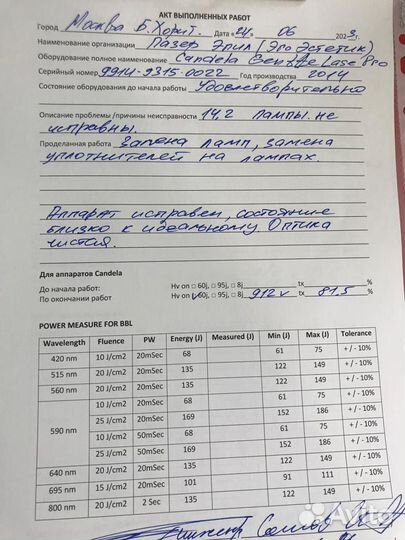 АКТ ВЫПОЛНЕННЫХ РАБОТ
Город Москва Б. Дата «24» 06 2023г.
Наименование организации Лазер Эпил (Эго Эстетик)
Оборудование полное наименование Candela GentleLase Pro
Серийный номер 9914-9315-0022 Год производства 2014
Состояние оборудования до начала работы Удовлетворительно
Описание проблемы /причины неисправности 14,2 лампы не
исправны.
Проделанная работа Замена ламп, замена
уплотнителей на лампах.
Аппарат исправен, состояние
близко к идеальному Оптика
чистая.
Для аппаратов Candela
До начала работ: Hv on □ 60j, □ 95j, □ 8j tx %
По окончании работ Hv on ✓60j, □ 95j, □ 8j 912v tx 81.5 %
POWER MEASURE FOR BBL
Wavelength Fluence PW Energy (J) Measured (J) Min (J) Max (J) Tolerance
420 nm 10 J/cm2 20mSec 68 61 75 +/- 10%
515 nm 20 J/cm2 20mSec 135 122 149 +/- 10%
560 nm 20 J/cm2 20mSec 135 122 149 +/- 10%
590 nm 10 J/cm2 20mSec 68 61 75 +/- 10%
25 J/cm2 20mSec 169 152 186 +/- 10%
10 J/cm2 50mSec 68 61 75 +/- 10%
25 J/cm2 50mSec 169 152 186 +/- 10%
640 nm 20 J/cm2 20mSec 135 122 149 +/- 10%
695 nm 15 J/cm2 20mSec 101 91 111 +/- 10%
800 nm 20 J/cm2 2 Sec 135 122 149 +/- 10%
Инженер
Avito